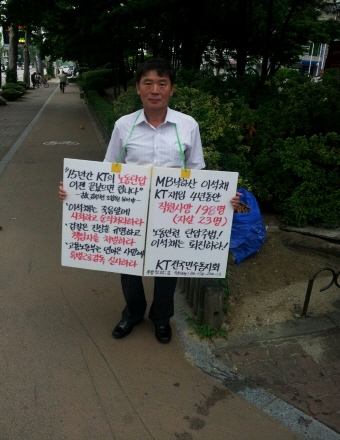 "15년간 KT의 노동탄압
이젠 끝났으면 합니다"
·이석채는 죽음앞에
사죄하고 물러나라
·검찰은 진상을 규명하고
책임자를 처벌하라
·고용노동부는 연이은 사망에
특별근로감독 실시하라
MB낙하산 이석채
KT재임 4년동안
직원사망 198명
(자살 23명)
노동탄압 단압수법!
이석채는 퇴진하라!
KT전국민주동지회